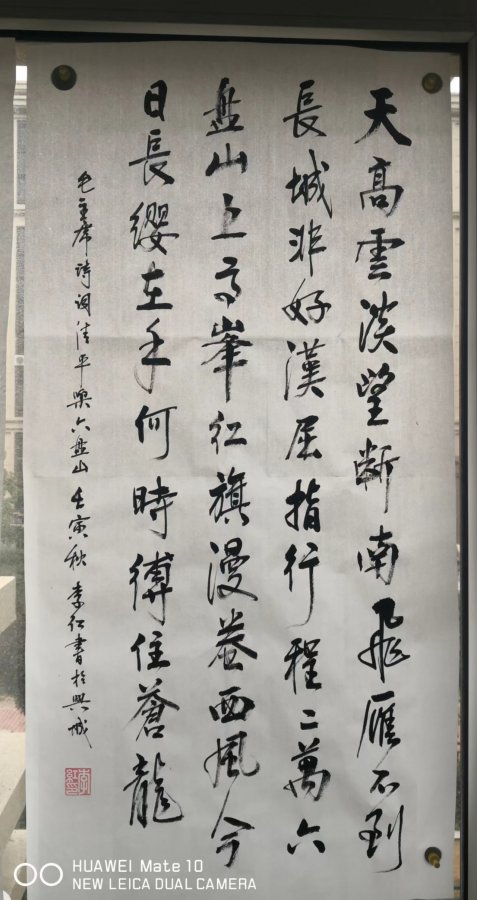 天高雲淡望斷南飛雁不到
長城非好漢屈指行程二萬六
盘山上高峯红旗漫卷西風今
日長缨在手何時縛住蒼龍
毛主席诗词清平樂六盘山 壬寅秋 李红書於興城
HUAWEI Mate 10
NEW LEICA DUAL CAMERA